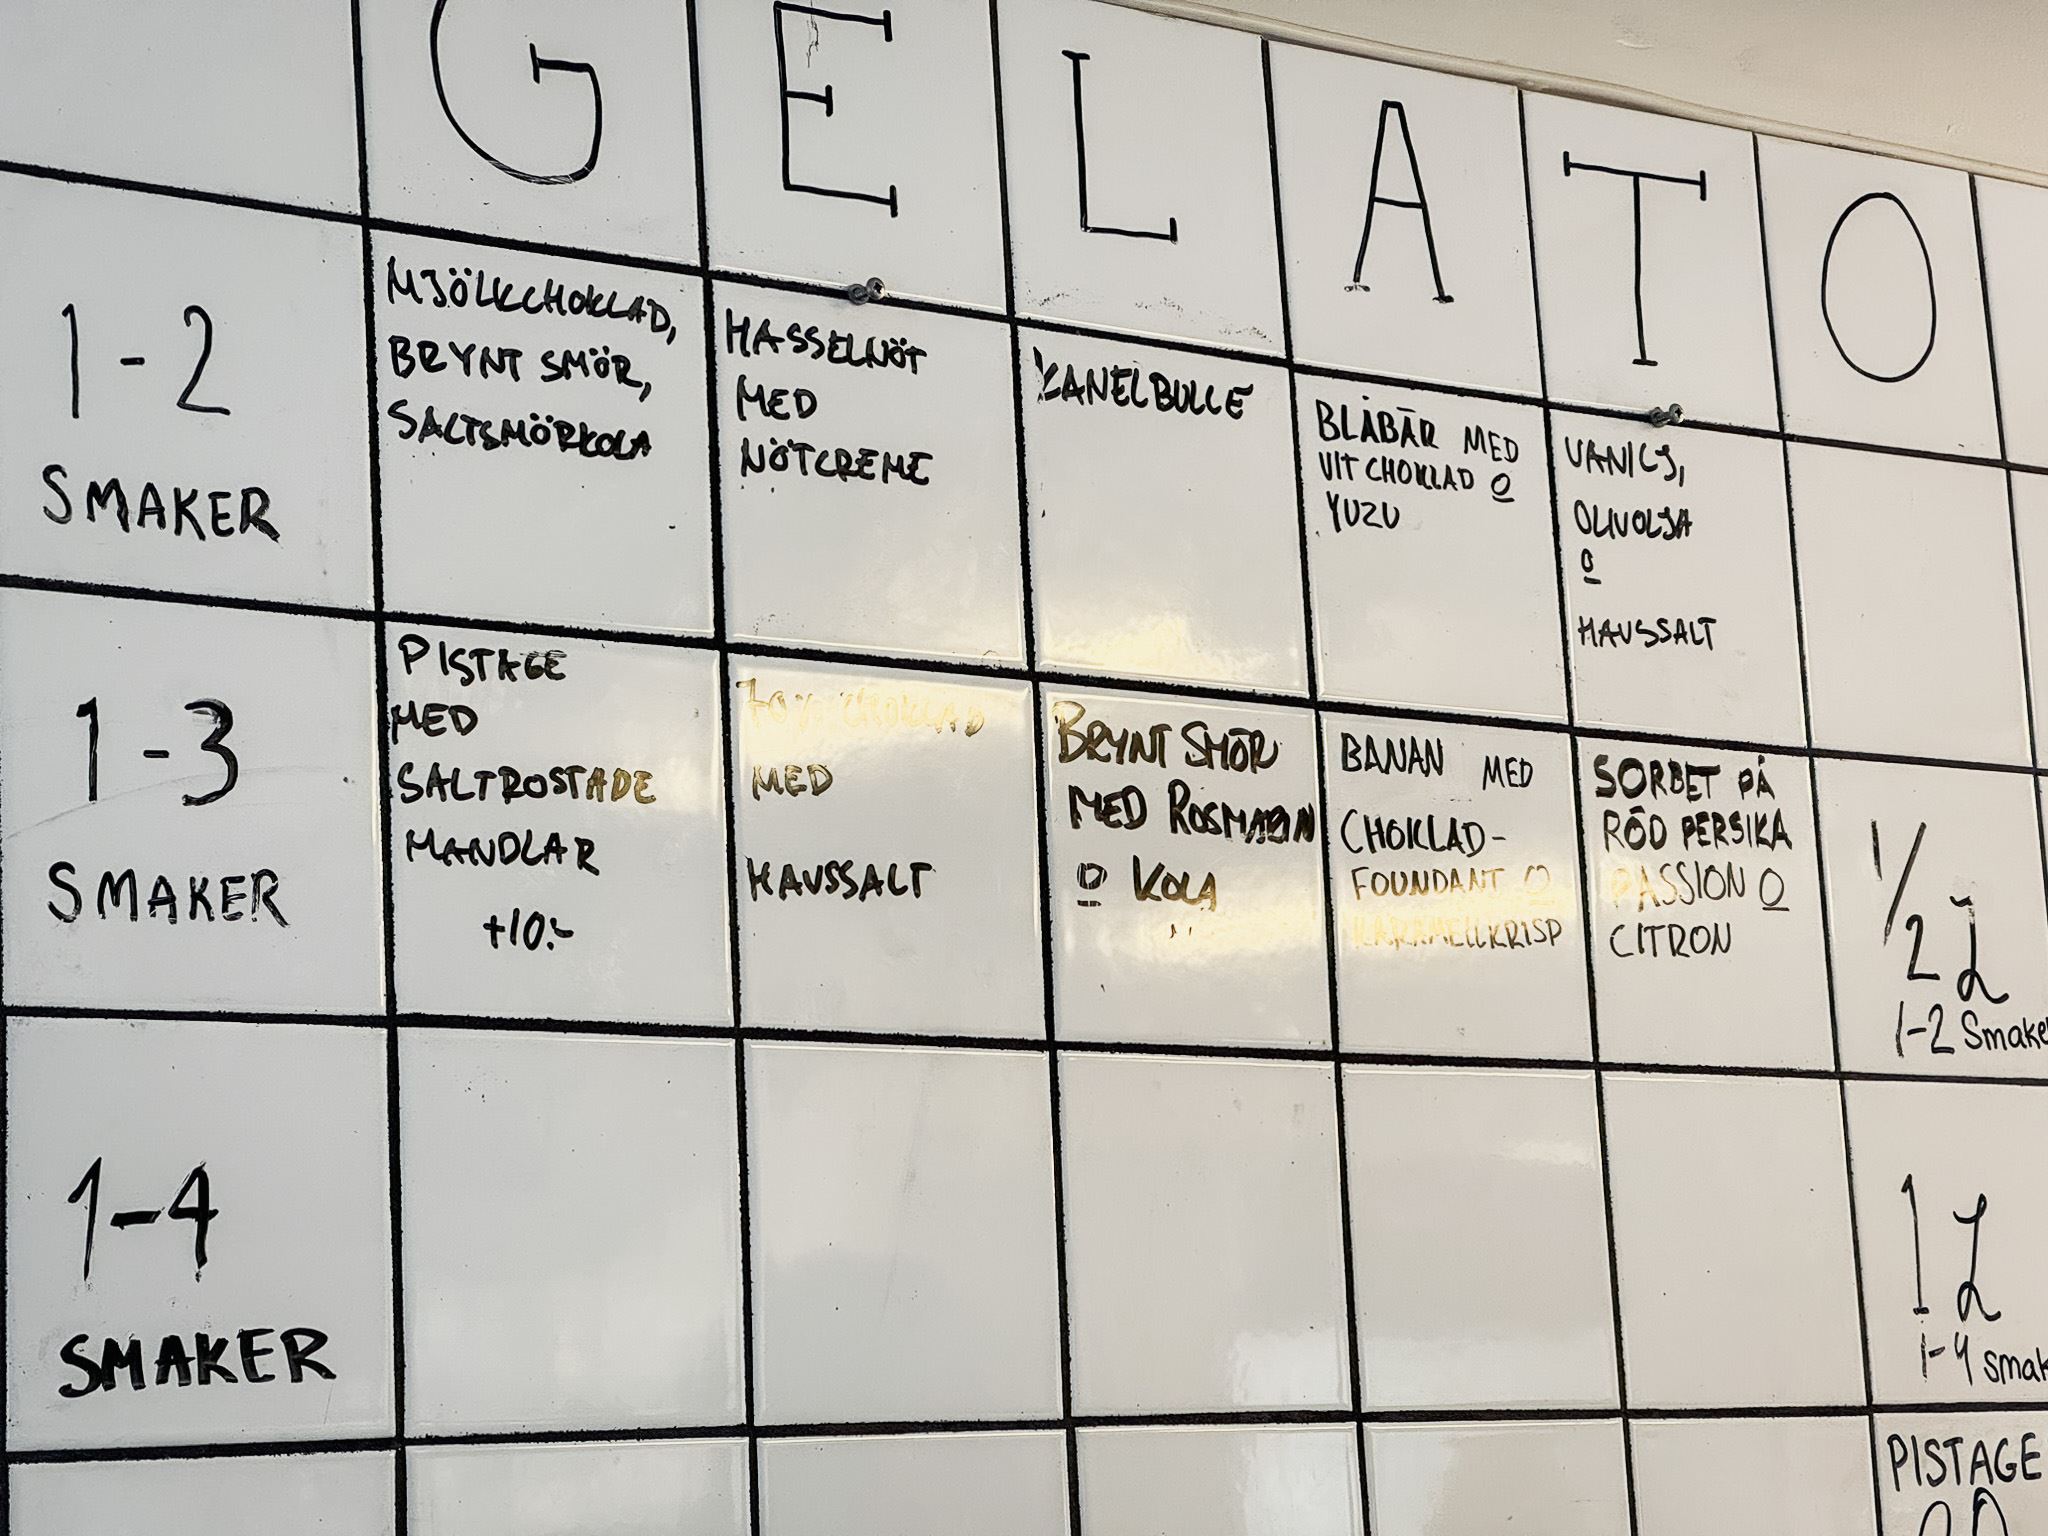 GELATO
1-2
SMAKER
MJÖLKCHOKLAD,
BRYNT SMÖR,
SALTSMÖRKOLA
HASSELNÖT
MED
NÖTCREME
KANELBULLE
BLÅBÄR MED
VIT CHOKLAD O
YUZU
VANILJ,
OLIVOLJA
O
HAVSSALT
1-3
SMAKER
PISTAGE
MED
SALTROSTADE
MANDLAR
+10:-
70% CHOKLAD
MED
HAVSSALT
BRYNT SMÖR
MED ROSMARIN
O KOLA
BANAN MED
CHOKLAD-
FOUNDANT O
KARAMELLKRISP
SORBET PÅ
RÖD PERSIKA
PASSION O
CITRON
1/2 L
1-2 Smake
1-4
SMAKER
1 L
1-4 smak
PISTAGE